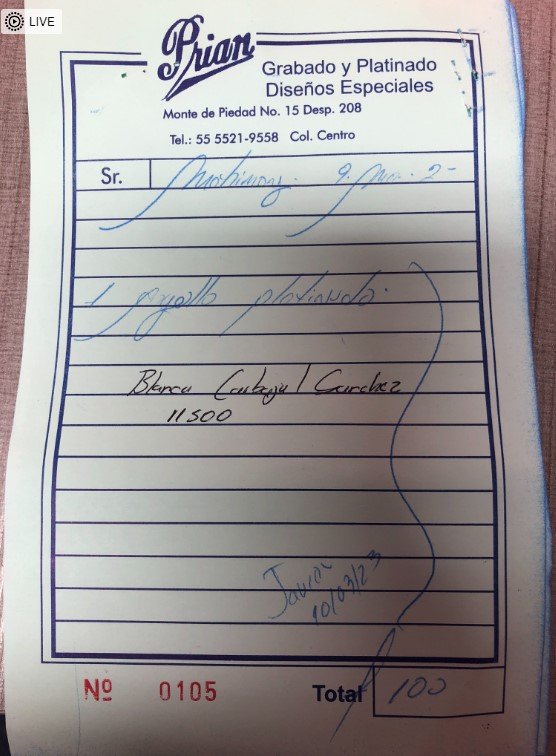 LIVE
Prian
Grabado y Platinado
Diseños Especiales
Monte de Piedad No. 15 Desp. 208
Tel.: 55 5521-9558 Col. Centro
Sr.
1 platinado.
Blanca Carbajal Sanchez
11500
Javier
10/03/23
Nº 0105 Total 100